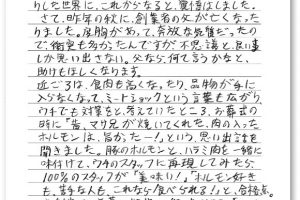 りした世界に、これがなると、覚悟はしました。
さて、昨年の秋に、創業者の父が亡くなっ
りました。度胸があって、奔放な性質だったの
で、衝突も多かったんですが不思議と、良い事
しか思い出さない。父なら、何て言うかなと、
助けもほしくなります。
近ごろは、食肉も高くなったり、品物が手に
入らなくなって、ミートショックという言葉も広がり、
ウチでも対策をと、考えていたところ、お葬式の
時に「昔、マリ兄が焼いてくれた、肉の入った
ホルモンは、旨かったー!」という、思い出話を
聞きました。豚のホルモンと、ハラミ肉を一緒に
味付けて、ウチのスタッフに再現してみたら
100%のスタッフが「美味い!」「ホルモン好き
も、苦手な人も、これなら食べられる!」と、合格点。